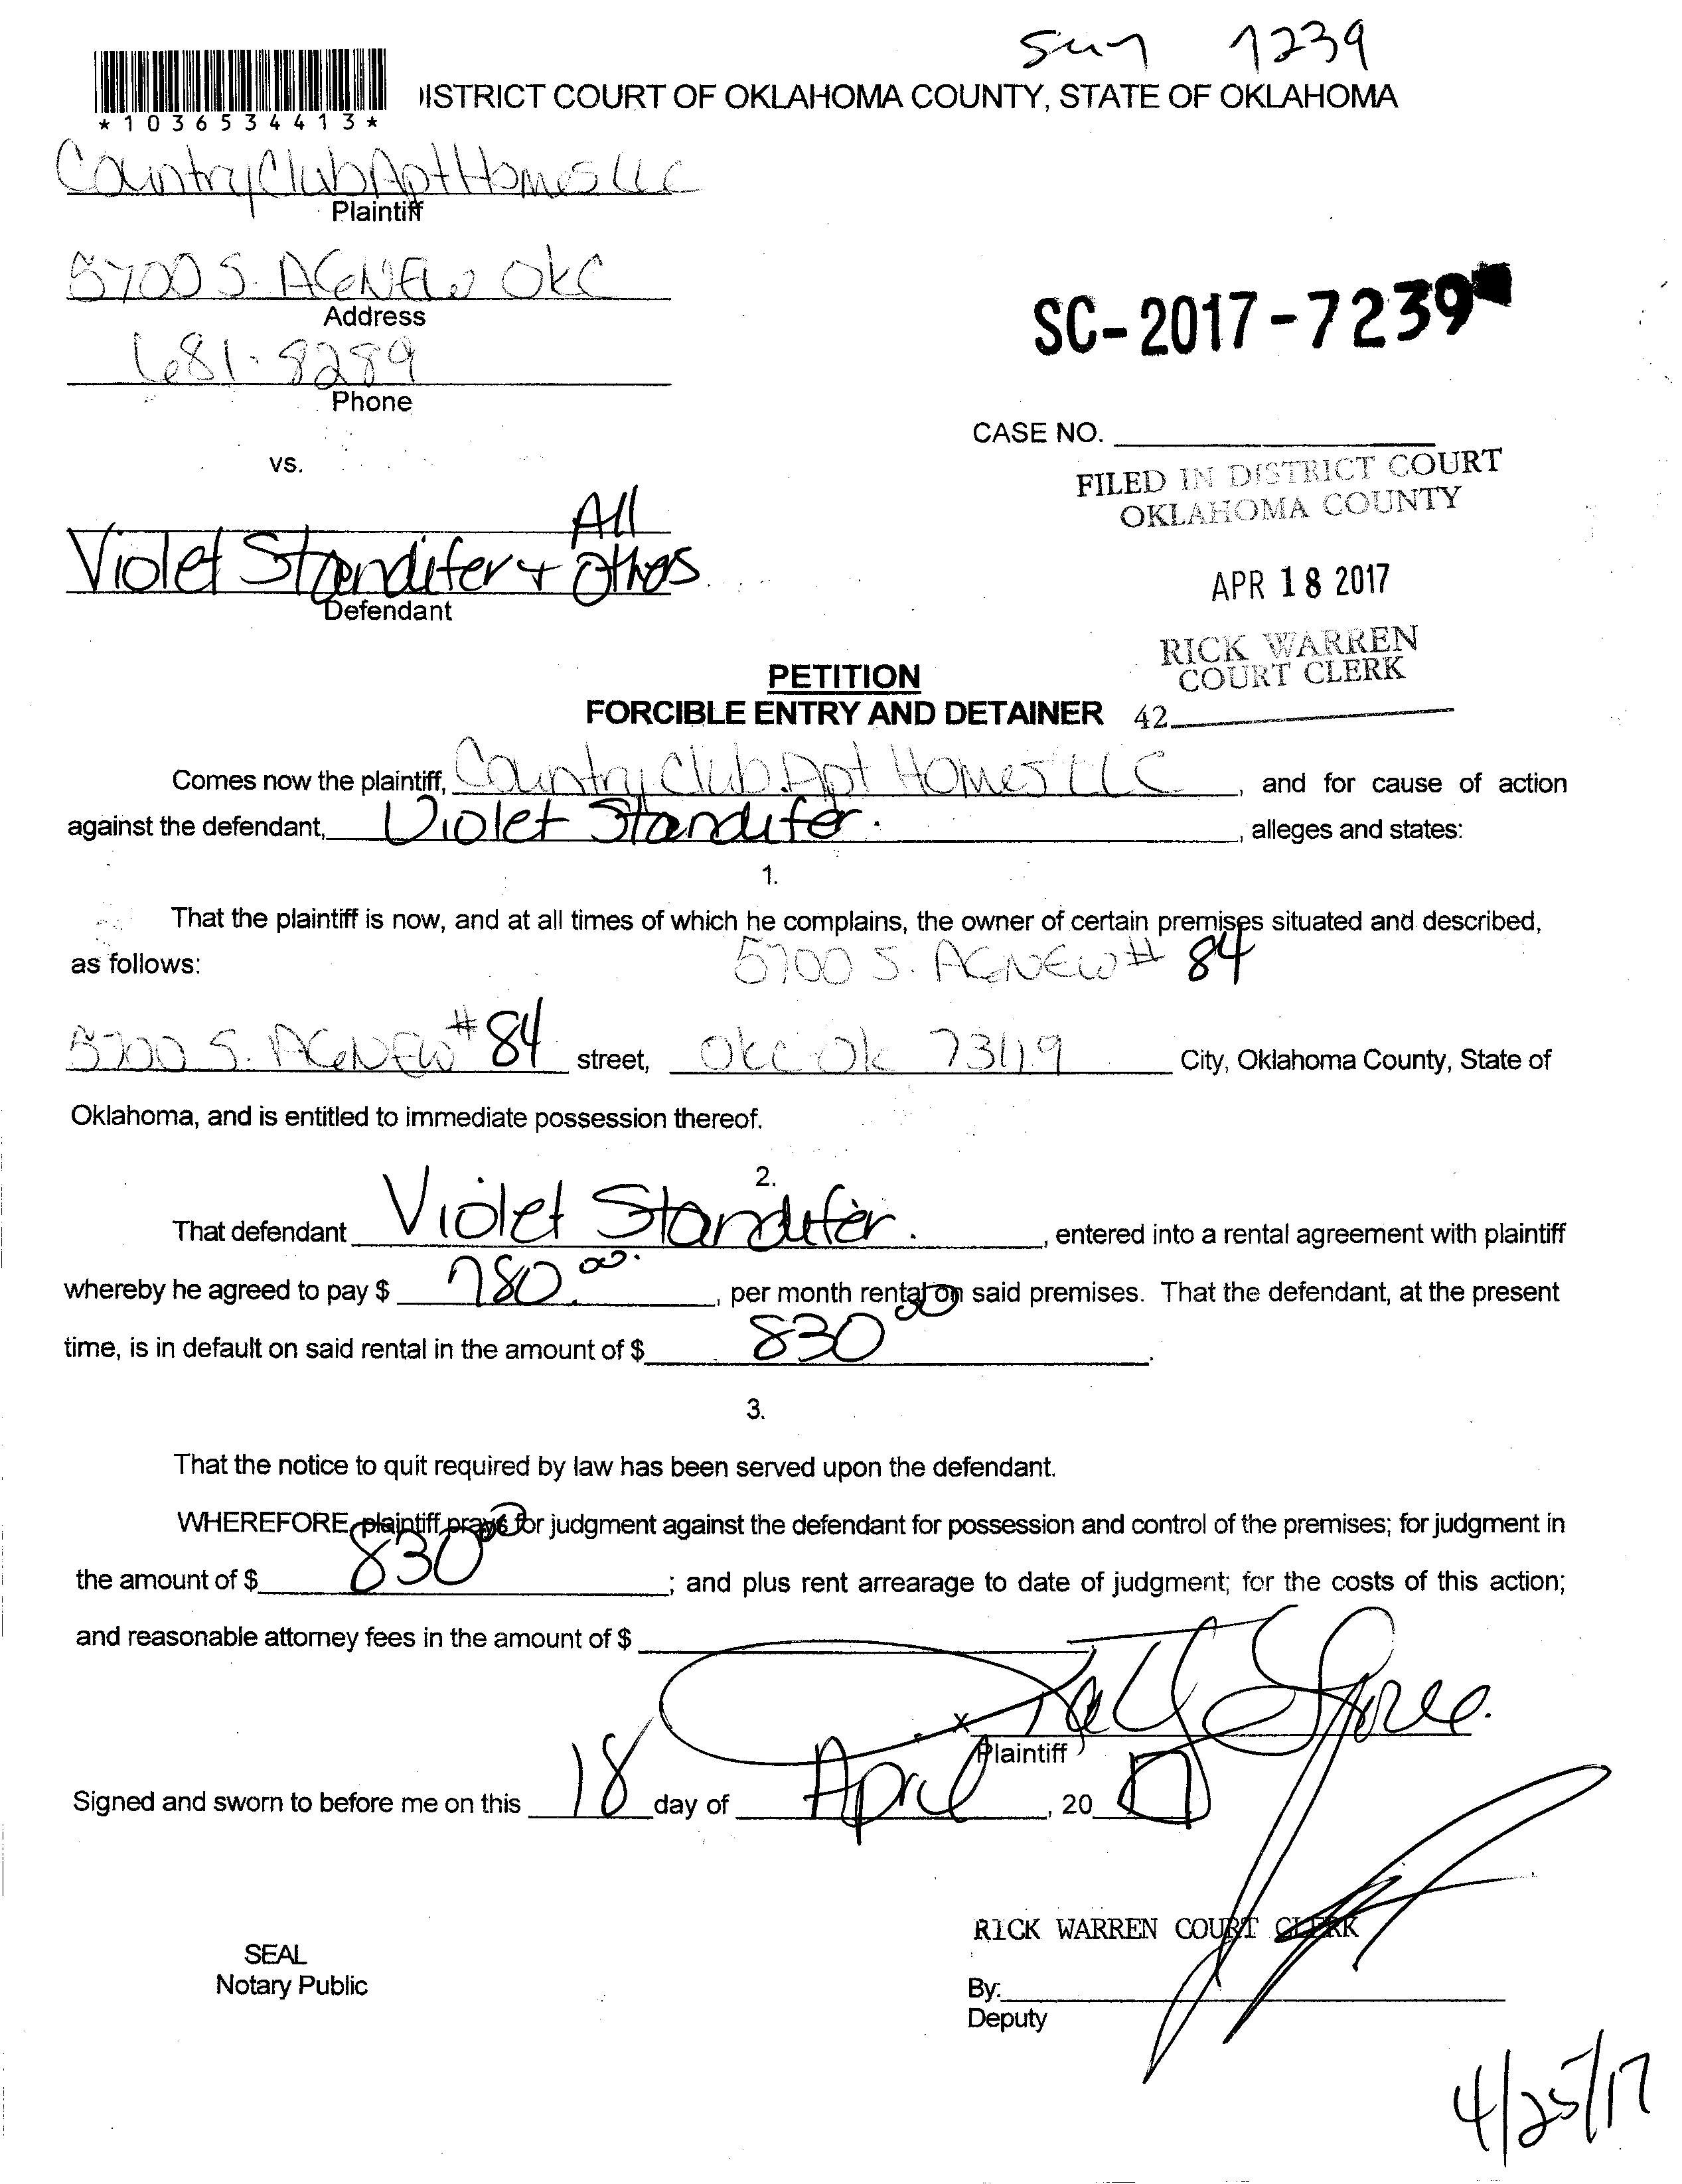 7239
*1036534413*
ISTRICT COURT OF OKLAHOMA COUNTY, STATE OF OKLAHOMA
Country Club Apt Homes LLC
Plaintiff
5700 S. AGNEW OKC
Address
681-8289
Phone
SC-2017-7239
CASE NO.
vs.
FILED IN DISTRICT COURT
OKLAHOMA COUNTY
All
Violet Standifer + Others
Defendant
APR 18 2017
RICK WARREN
COURT CLERK
PETITION
FORCIBLE ENTRY AND DETAINER 42
Comes now the plaintiff, Country Club Apt Homes LLC, and for cause of action
against the defendant, Violet Standifer., alleges and states:
1.
That the plaintiff is now, and at all times of which he complains, the owner of certain premises situated and described,
as follows: 5700 S. AGNEW # 84
5700 S. AGNEW # 84 street, OKC OK 73119 City, Oklahoma County, State of
Oklahoma, and is entitled to immediate possession thereof.
2.
That defendant Violet Standifer., entered into a rental agreement with plaintiff
whereby he agreed to pay $ 780.00, per month rental on said premises. That the defendant, at the present
time, is in default on said rental in the amount of $ 830 00.
3.
That the notice to quit required by law has been served upon the defendant.
WHEREFORE, plaintiff prays for judgment against the defendant for possession and control of the premises; for judgment in
the amount of $ 830 00; and plus rent arrearage to date of judgment; for the costs of this action;
and reasonable attorney fees in the amount of $
x
Plaintiff
Signed and sworn to before me on this 18 day of April, 20 17
RICK WARREN COURT CLERK
SEAL
Notary Public
By:
Deputy
4/25/17